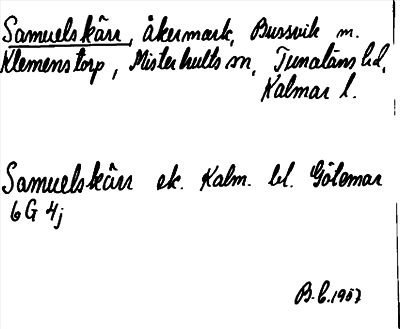 Samuelskärr, åkermark, Bussvik m.
Klemenstorp, Misterhults sn, Tunaläns hd,
Kalmar l.
Samuelskärr ek. Kalm. bl. Götemar
6G 4j
B.C. 1957